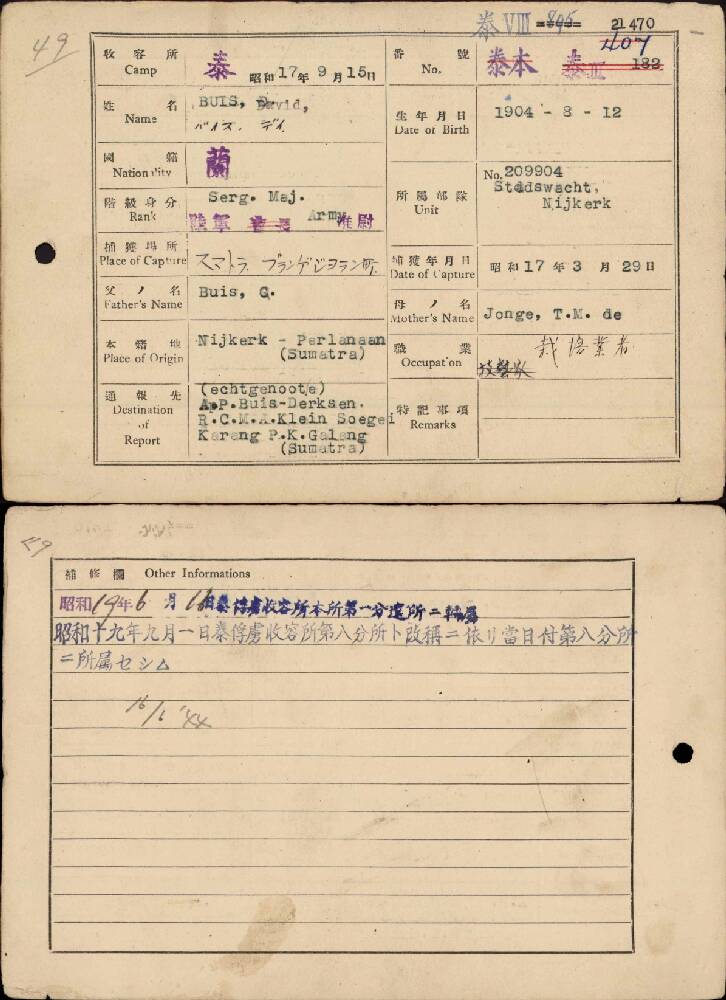 泰VIII 895 21470
49
407
收容所 Camp 泰 昭和17年9月15日
番號 No. 泰本 泰II 182
姓名 Name BUIS, David,
バイズ、デイ
生年月日 Date of Birth 1904 - 8 - 12
國籍 Nationality 蘭
所屬部隊 Unit No. 209904
Stadswacht,
Nijkerk
階級身分 Rank Serg. Maj.
陸軍 Army 准尉
捕獲場所 Place of Capture スマトラ ブランゲジヨラン町.
捕獲年月日 Date of Capture 昭和17年3月29日
父ノ名 Father's Name Buis, G.
母ノ名 Mother's Name Jonge, T.M. de
本籍地 Place of Origin Nijkerk - Perlanaan
(Sumatra)
職業 Occupation 栽培業者
通報先 Destination of Report (echtgenoote)
A.P.Buis-Derksen.
R.C.M.A.Klein Soegei
Karang P.K.Galang
(Sumatra)
特記事項 Remarks
49
補修欄 Other Informations
昭和19年6月16日泰俘虜收容所本所第一分遣所ニ轉屬
昭和十九年九月一日泰俘虜收容所第八分所ト改稱ニ依リ當日付第八分所
ニ所属セシム
16/6 '44